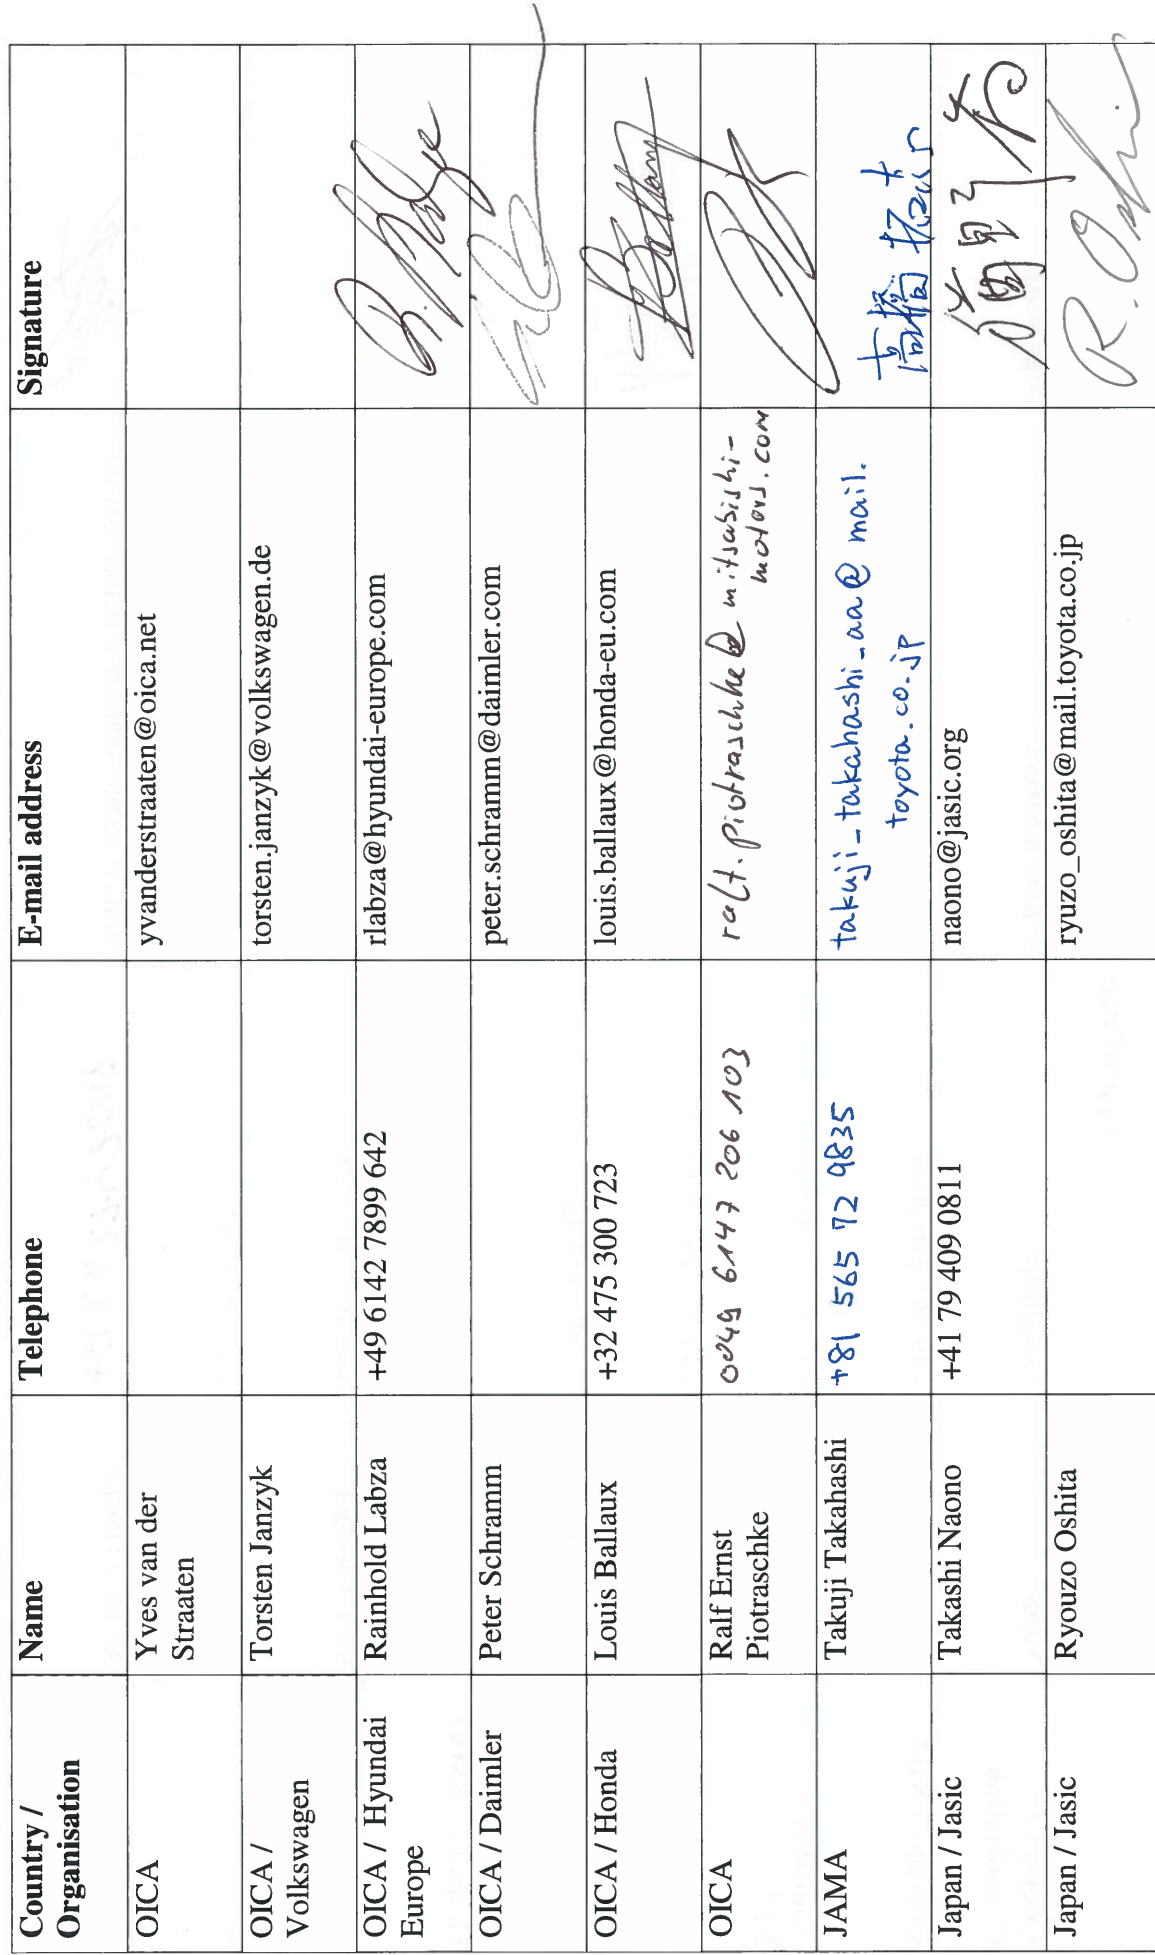 Country /
Organisation
Name
Telephone
E-mail address
Signature
OICA
Yves van der
Straaten
yvanderstraaten@oica.net
OICA /
Volkswagen
Torsten Janzyk
torsten.janzyk@volkswagen.de
OICA / Hyundai
Europe
Rainhold Labza
+49 6142 7899 642
rlabza@hyundai-europe.com
OICA / Daimler
Peter Schramm
peter.schramm@daimler.com
OICA / Honda
Louis Ballaux
+32 475 300 723
louis.ballaux@honda-eu.com
OICA
Ralf Ernst
Piotraschke
0049 6147 206 103
ralf.piotraschke@mitsubishi-
motors.com
JAMA
Takuji Takahashi
+81 565 72 9835
takuji_takahashi_aa@mail.
toyota.co.jp
高橋 拓
Japan / Jasic
Takashi Naono
+41 79 409 0811
naono@jasic.org
Japan / Jasic
Ryouzo Oshita
ryuzo_oshita@mail.toyota.co.jp
R. Oshi